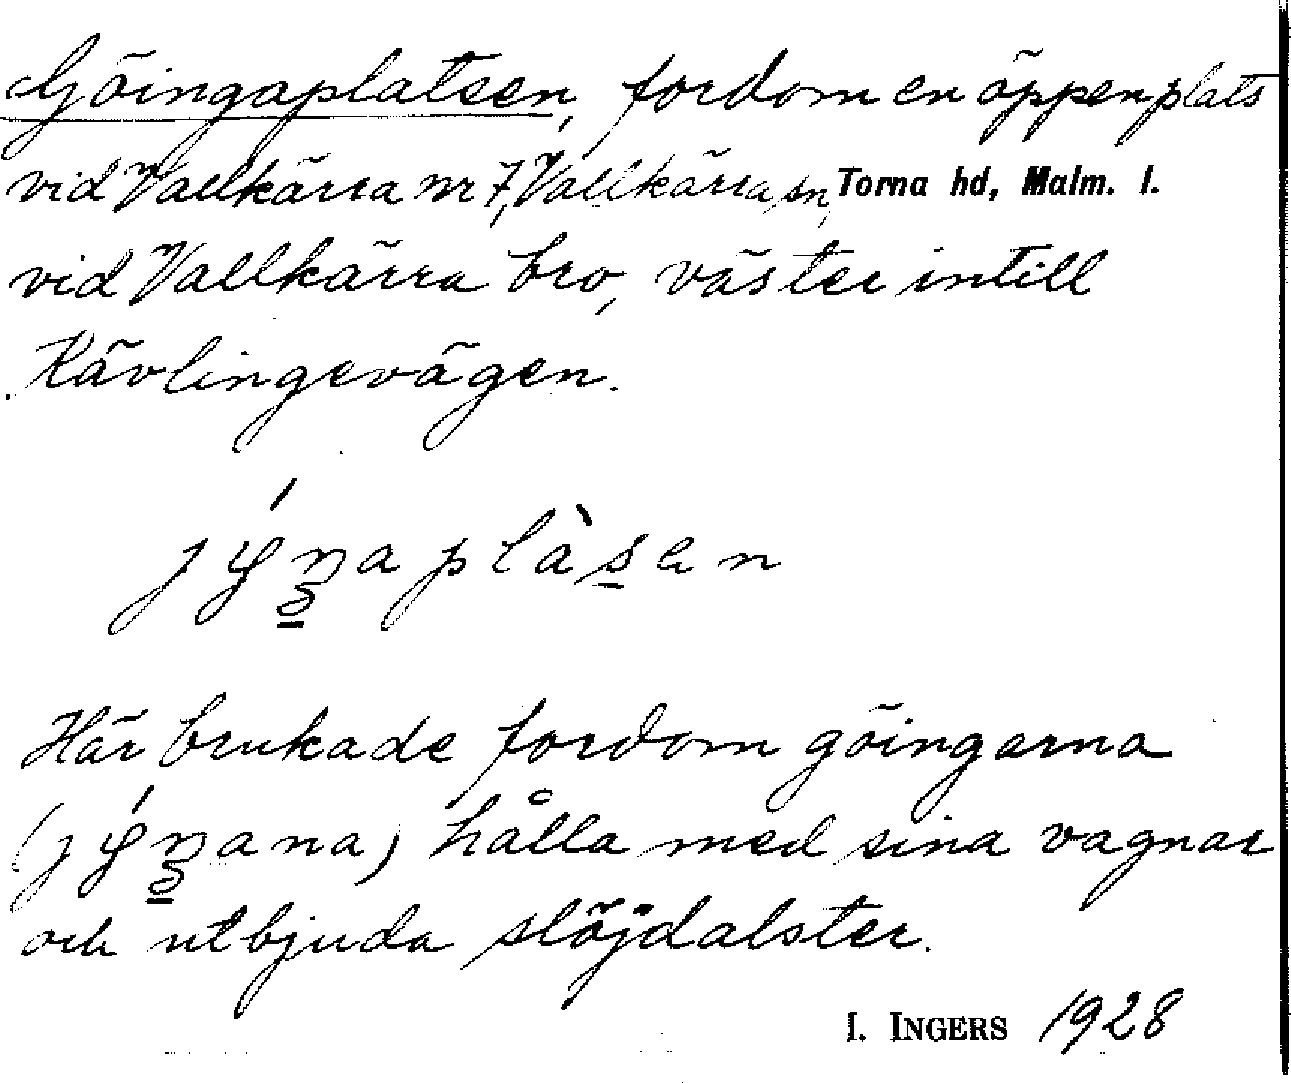 Göingaplatsen, fordom en öppen plats
vid Vallkärra nr 7, Vallkärra sn, Torna hd, Malm. l.
vid Vallkärra bro, väster intill
Kävlingevägen.
Här brukade fordom göingarna
hålla med sina vagnar
och utbjuda slöjdalster.
I. INGERS 1928